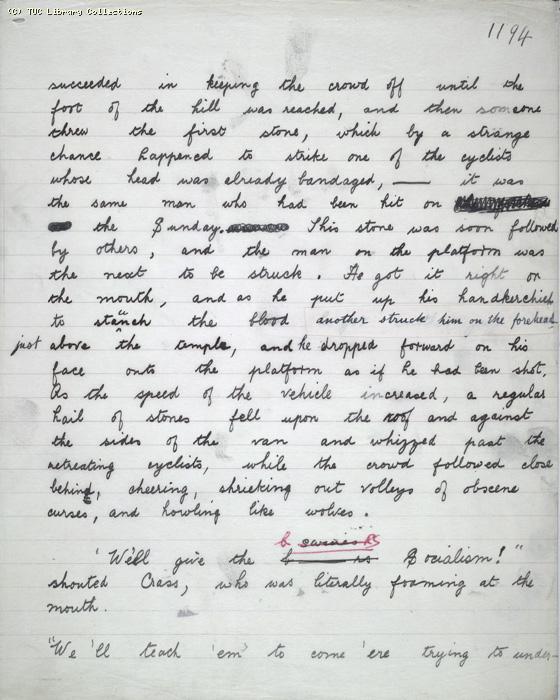 (C) TUC Library Collections
1194
succeeded in keeping the crowd off until the
foot of the hill was reached, and then someone
threw the first stone, which by a strange
chance happened to strike one of the cyclists
whose head was already bandaged, — it was
the same man who had been hit on
the Sunday. This stone was soon followed
by others, and the man on the platform was
the next to be struck. He got it right on
the mouth, and as he put up his handkerchief
to stanch the blood another struck him on the forehead
just above the temple, and he dropped forward on his
face onto the platform as if he had been shot.
As the speed of the vehicle increased, a regular
hail of stones fell upon the roof and against
the sides of the van and whizzed past the
retreating cyclists, while the crowd followed close
behind, cheering, shrieking out volleys of obscene
curses, and howling like wolves.
"We'll give the b rs Socialism!"
shouted Crass, who was literally foaming at the
mouth.
"We'll teach 'em to come 'ere trying to under-